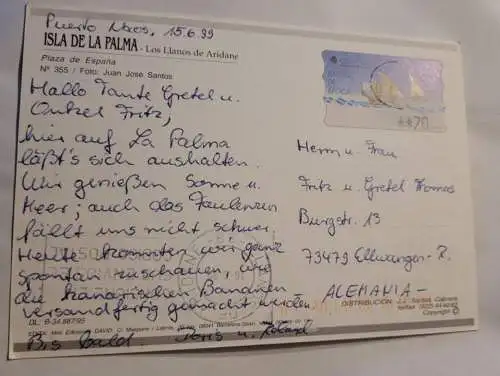 Puerto Naos, 15.6.99
ISLA DE LA PALMA - Los Llanos de Aridane
Plaza de España
Nº 355 / Foto: Juan José Santos
Hallo Tante Gretel u.
Onkel Fritz,
hier auf La Palma
läßt's sich aushalten.
Wir genießen Sonne u.
Meer; auch das Faulenzen
fällt uns nicht schwer.
Heute konnten wir ganz
spontan zuschauen, wie
die kanarischen Bananen
versandfertig gemacht werden.
Bis bald. Doris u. Roland
**70
Herrn u. Frau
Fritz u. Gretel Thomas
Burgstr. 13
73479 Ellwangen-R.
ALEMANIA-
DISTRIBUCION: J.J. Santos Cabrera
Copyright ©
DL: B-34.887/95